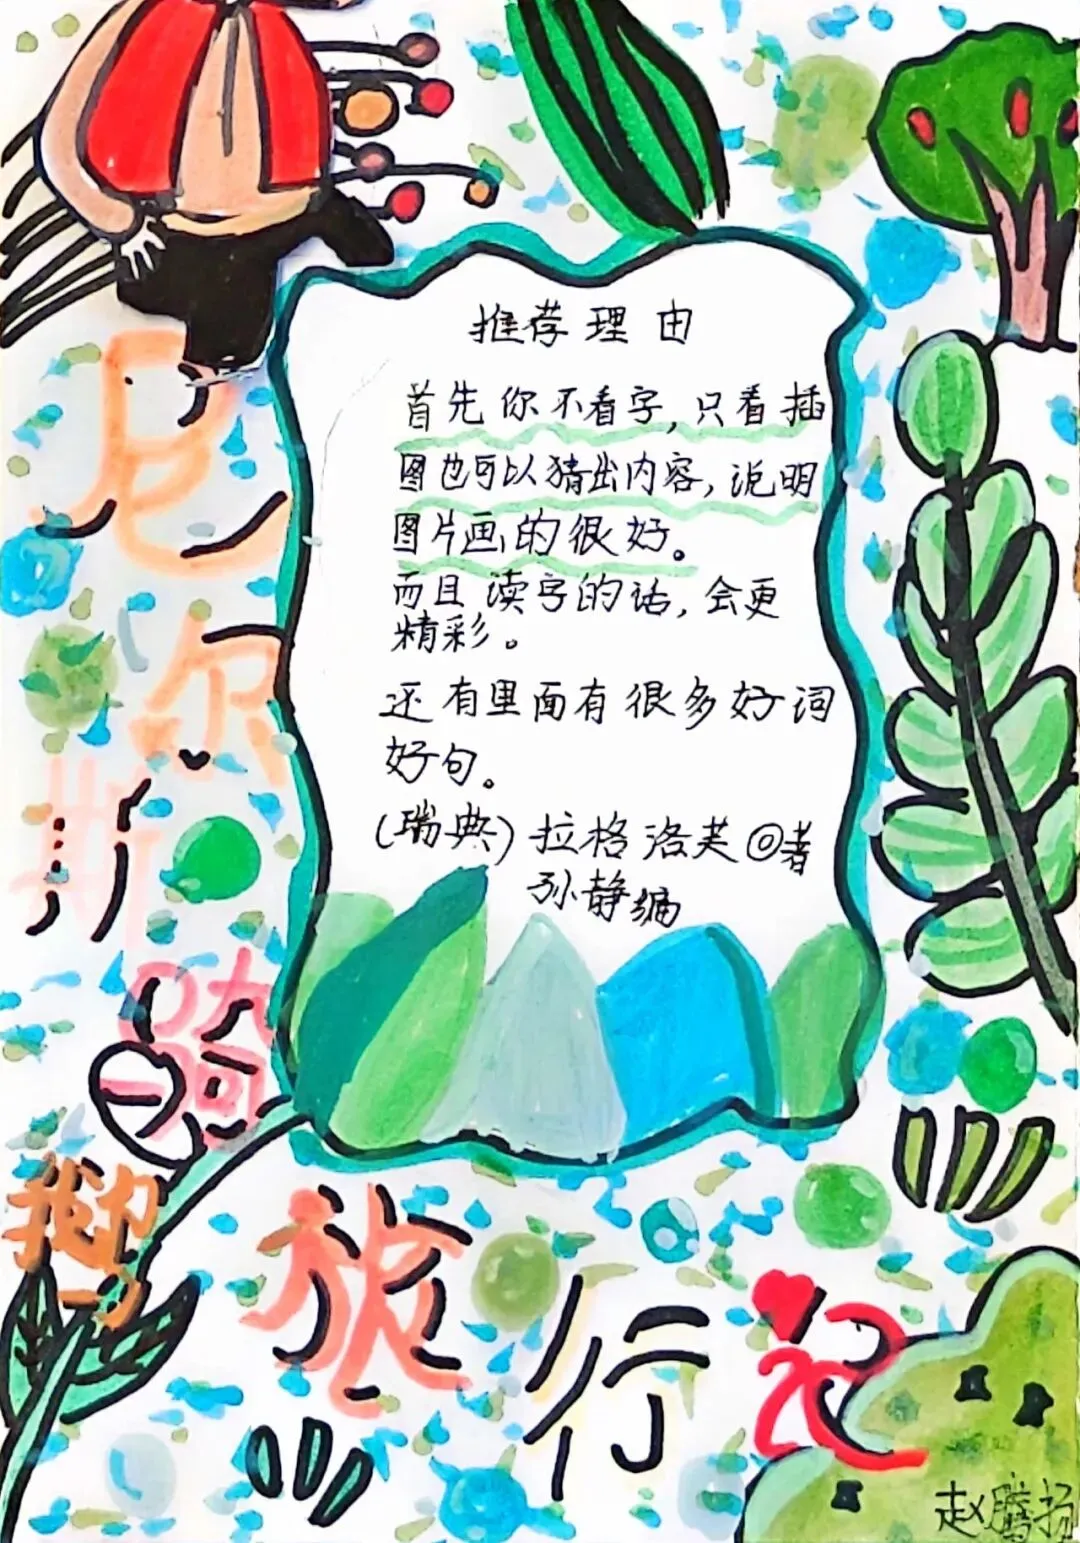 推荐理由
首先你不看字,只看插
图也可以猜出内容,说明
图片画的很好。
而且读字的话,会更
精彩。
还有里面有很多好词
好句。
(瑞典)拉格洛芙◎著
孙静编
尼尔斯骑鹅
旅行记
赵腾扬